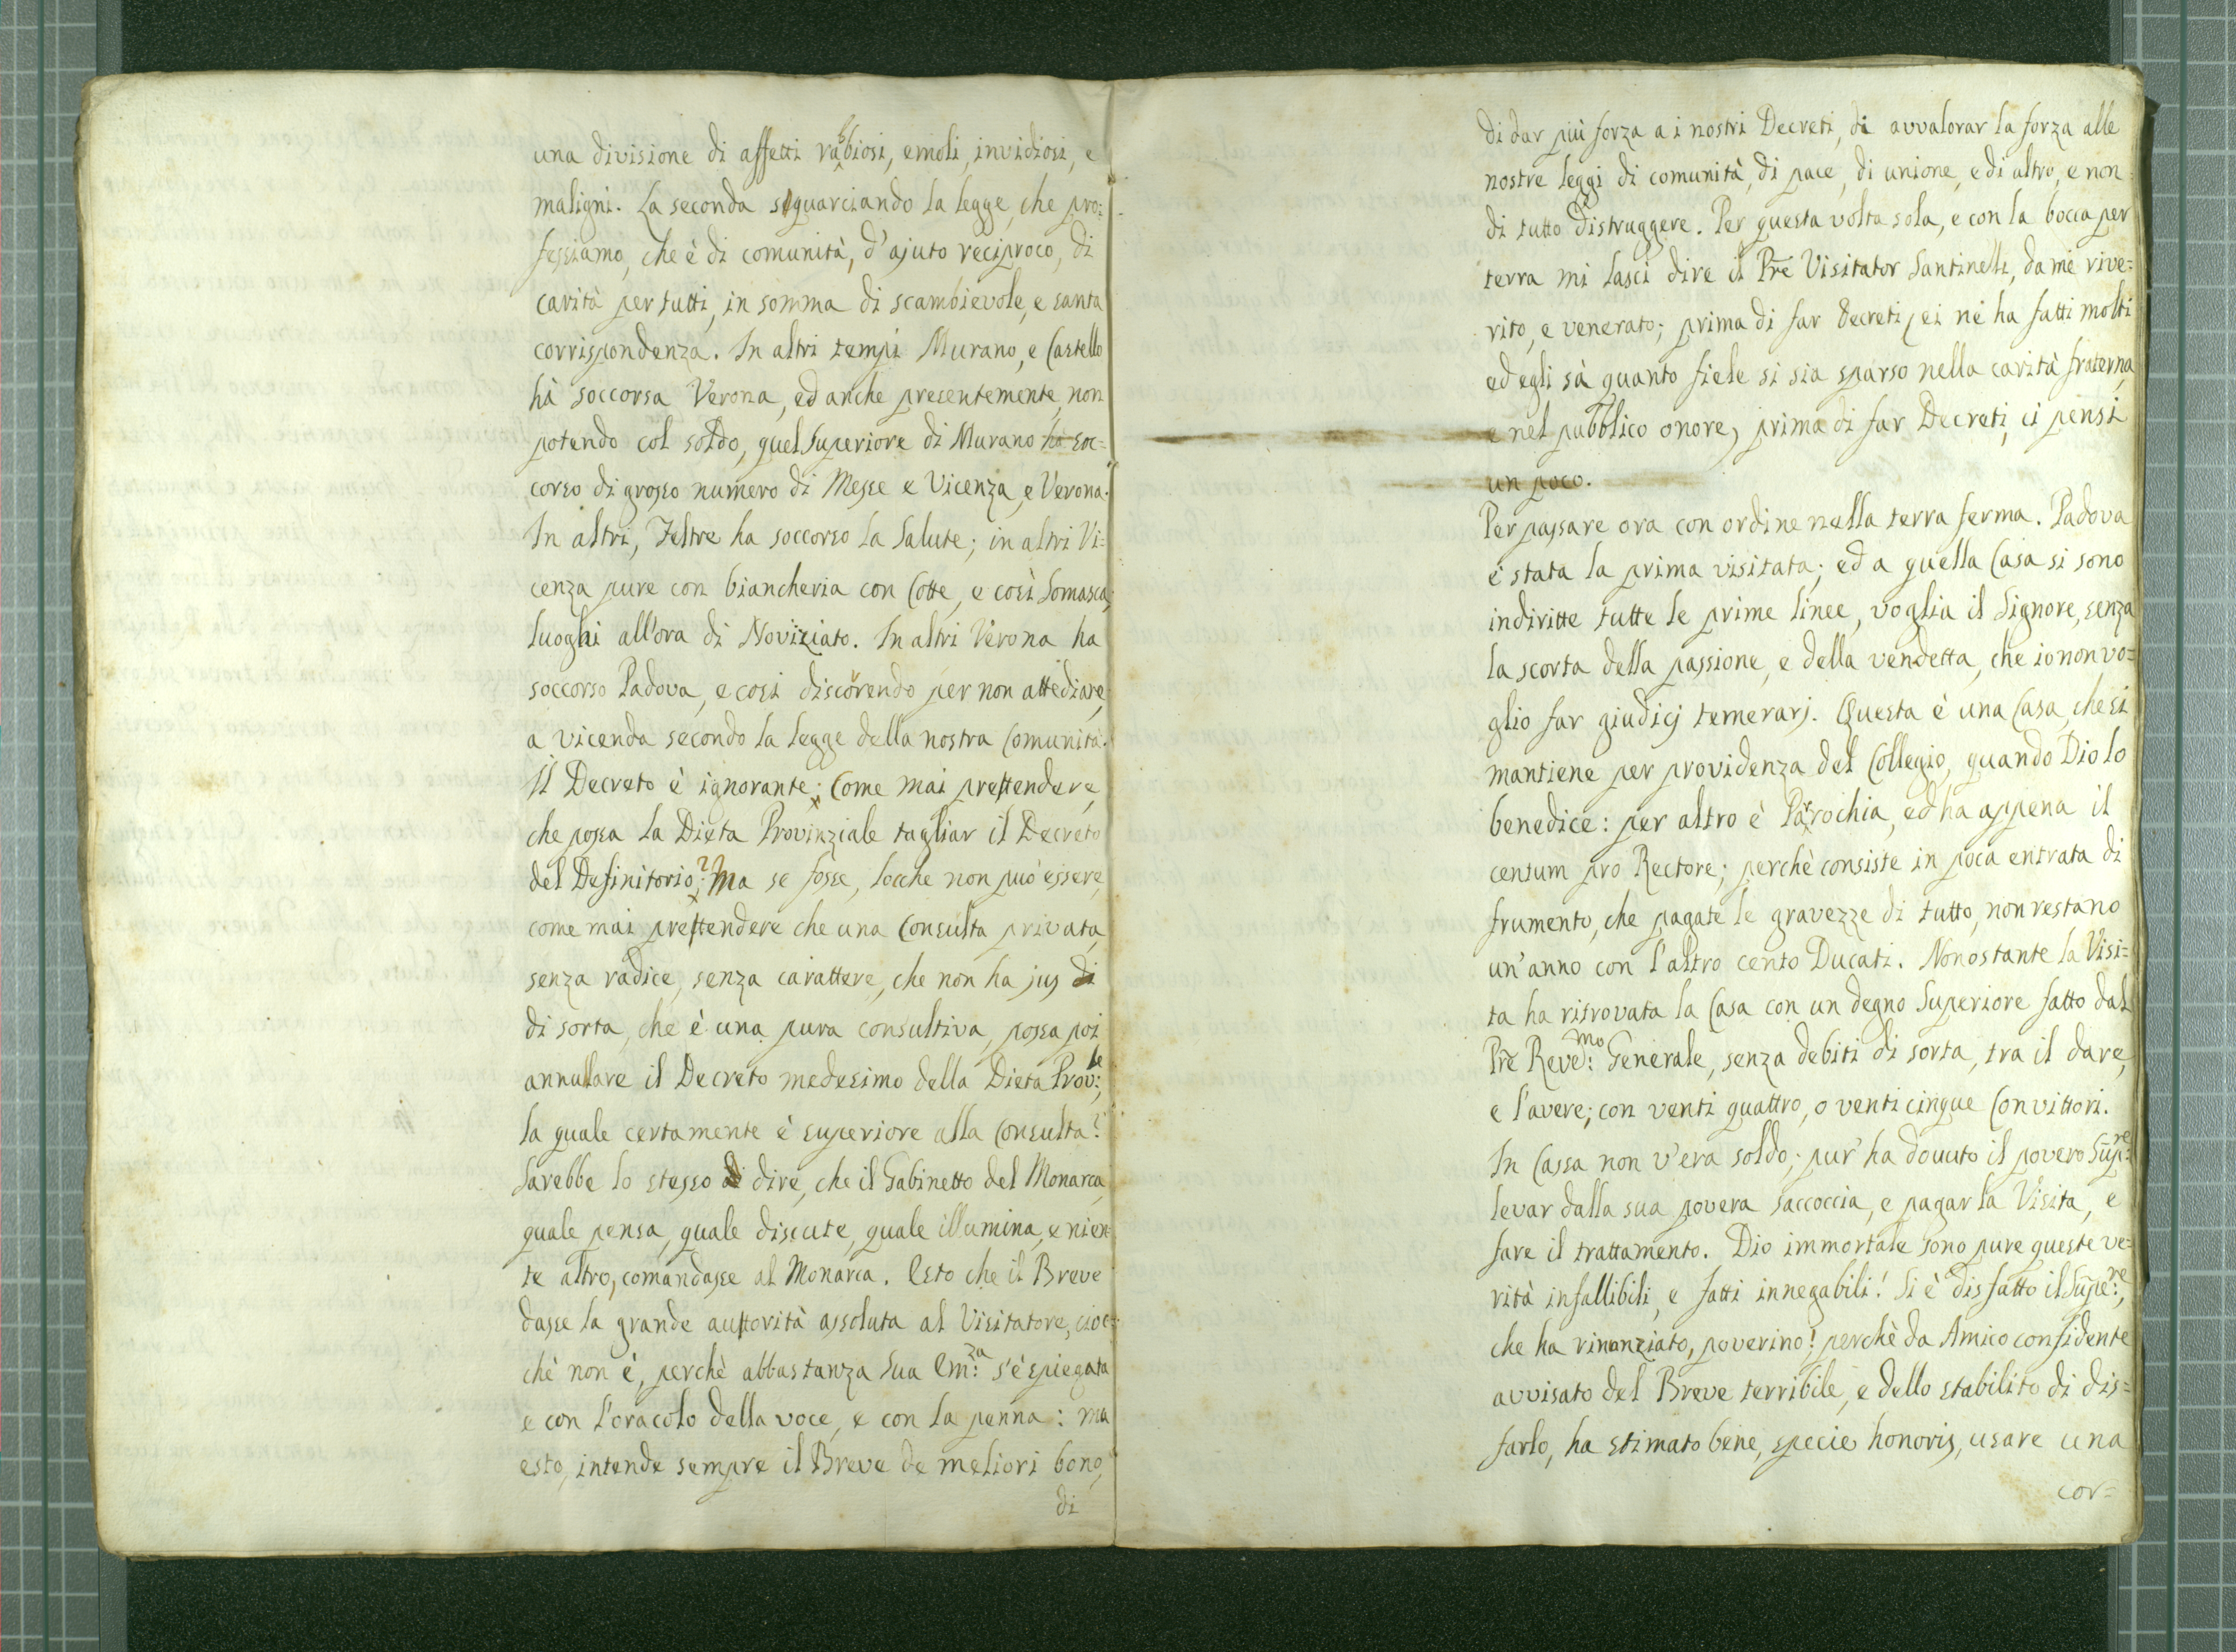 una divisione di affetti rabbiosi, emoli, invidiosi, e
maligni. La seconda squarciando la legge, che pro=
fessiamo, che è di comunità, d'ajuto reciproco, di
carità per tutti, in somma di scambievole, e santa
corrispondenza. In altri tempi Murano, e Castello
hà soccorsa Verona, ed anche presentemente, non
potendo col soldo, quel Superiore di Murano ha soc=
corso di grosso numero di Messe e Vicenza, e Verona.
In altri, Feltre ha soccorso la Salute; in altri Vi=
cenza pure con biancheria con Cotte, e così Somasca;
luoghi all'ora di Noviziato. In altri Verona ha
soccorso Padova, e così discorrendo per non attediare,
a vicenda secondo la legge della nostra Comunità.
Il Decreto è ignorante; Come mai pretendere,
che possa la Dieta Provinziale tagliar il Decreto
del Definitorio? Ma se fosse, locche non può essere,
come mai pretendere che una Consulta privata,
senza radice, senza carattere, che non ha jus di
di sorta, che è una pura consultiva, possa poi
annullare il Decreto medesimo della Dieta Prov:le,
la quale certamente è superiore alla Consulta?
Sarebbe lo stesso di dire, che il Gabinetto del Monarca,
quale pensa, quale discute, quale illumina, e nien
te altro, comandasse al Monarca. Esto che il Breve
dasse la grande autorità assoluta al Visitatore, cioc=
chè non è, perchè abbastanza Sua Em:za s'è spiegata
e con l'oracolo della voce, e con la penna: ma
esto, intende sempre il Breve de meliori bono,
di
di dar più forza a i nostri Decreti, di avvalorar la forza alle
nostre leggi di comunità, di pace, di unione, e di altro, e non
di tutto distruggere. Per questa volta sola, e con la bocca per
terra mi lasci dire il Prē Visitator Santinelli, da me rive=
rito, e venerato; prima di far Decreti, ei ne ha fatti molti
ed egli sà quanto fiele si sia sparso nella carità fraterna,
e nel pubblico onore, prima di far Decreti, ci pensi
un poco.
Per passare ora con ordine nella terra ferma. Padova
è stata la prima visitata; ed a quella Casa si sono
indiritte tutte le prime linee, voglia il Signore, senza
la scorta della passione, e della vendetta, che io non vo=
glio far giudicj temerarj. Questa è una Casa, che si
mantiene per providenza del Collegio, quando Dio lo
benedice: per altro è Parrochia, ed ha appena il
centum pro Rectore; perchè consiste in poca entrata di
frumento, che pagate le gravezze di tutto, non restano
un'anno con l'altro cento Ducati. Nonostante la Visi=
ta ha ritrovata la Casa con un degno Superiore fatto dal
Prē Reve:mo Generale, senza debiti di sorta, tra il dare,
e l'avere; con venti quattro, o venti cinque Convittori.
In Cassa non v'era soldo; pur'ha douuto il povero Sup:re
levar dalla sua povera saccoccia, e pagar la Visita, e
fare il trattamento. Dio immortale sono pure queste ve=
rità infallibili, e fatti innegabili! Si è disfatto il Supe:re,
che ha rinunziato, poverino! perchè da Amico confidente
avvisato del Breve terribile, e dello stabilito di dis=
farlo, ha stimato bene, specie honoris, usare una
cor=